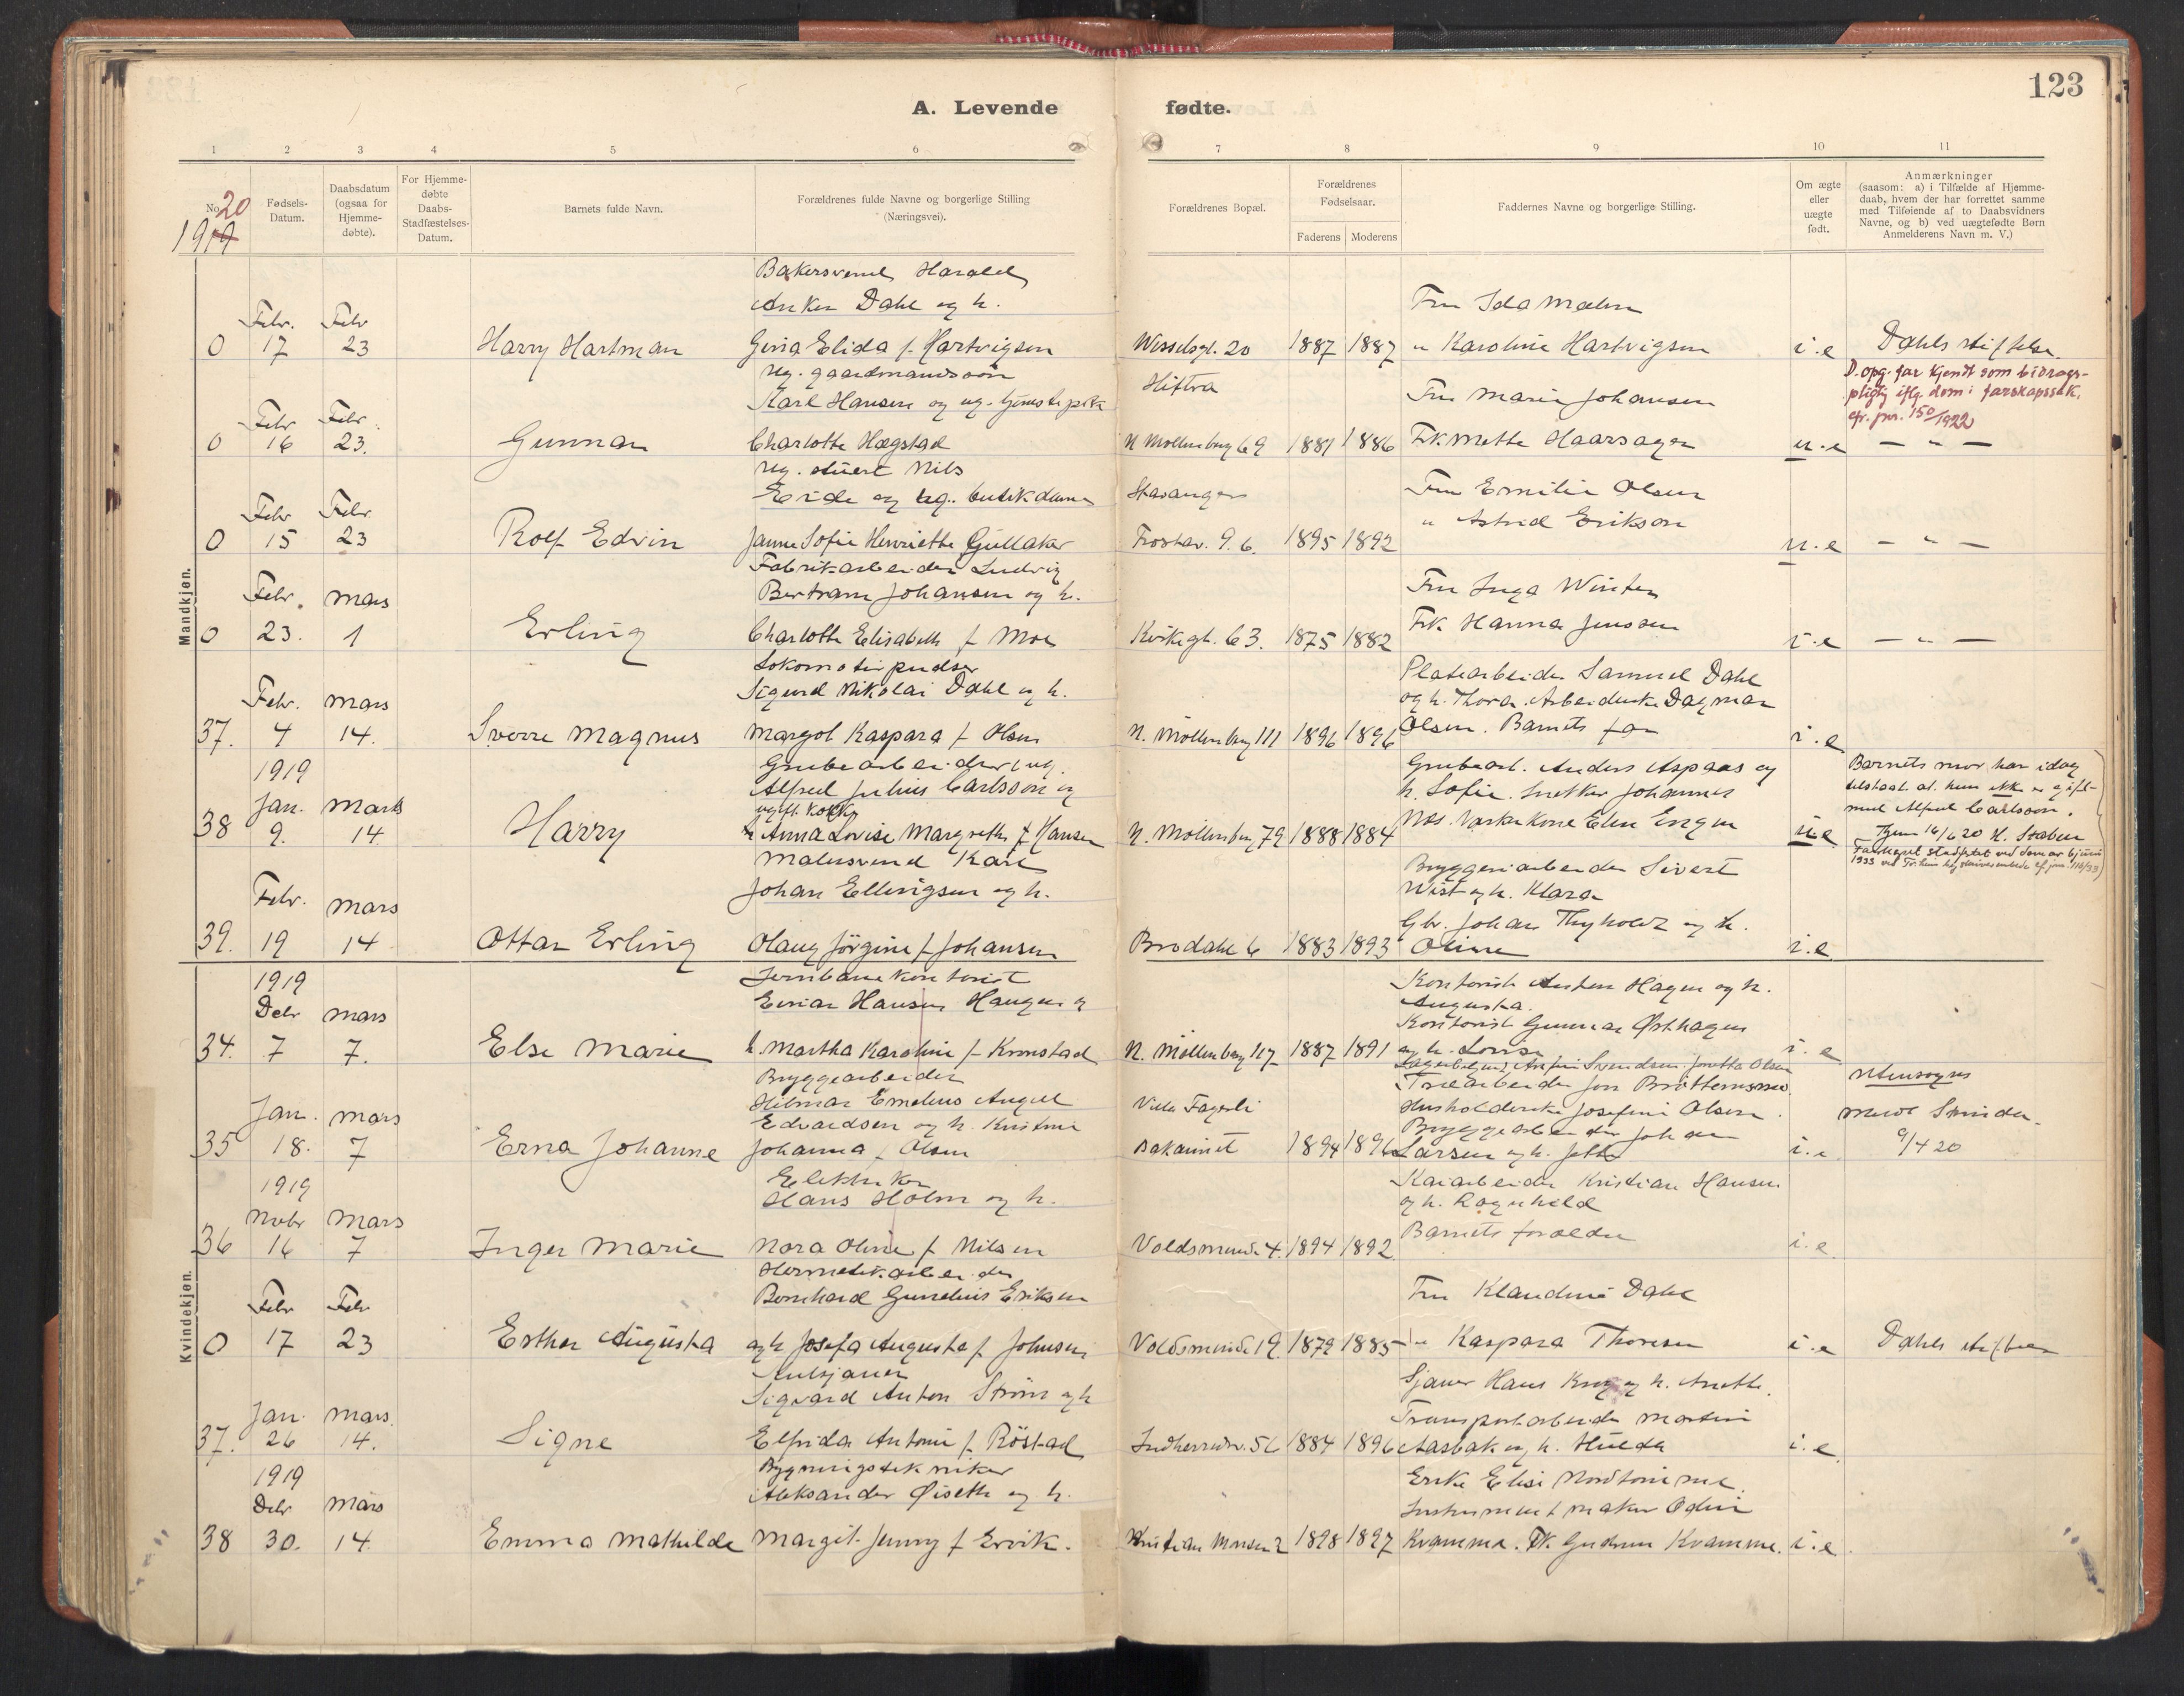 123
A. Levende fødte.
1 2 3 4 5 6 7 8 9 10 11
No.
20
1919
Fødsels-
Datum.
Daabsdatum
(ogsaa for
Hjemme-
døbte).
For Hjemme-
døbte
Daabs-
Stadfæstelses-
Datum.
Barnets fulde Navn.
Forældrenes fulde Navne og borgerlige Stilling
(Næringsvei).
Forældrenes Bopæl.
Forældrenes
Fødselsaar.
Faderens Moderens
Faddernes Navne og borgerlige Stilling.
Om ægte
eller
uægte
født.
Anmærkninger
(saasom: a) i Tilfælde af Hjemme-
daab, hvem der har forrettet samme
med Tilføiende af to Daabsvidners
Navne, og b) ved uægtefødte Børn
Anmelderens Navn m. V.)
Mandkjøn.
Bakersvend Harald
Anker Dahl og h.
Fru Ida Mælen
Febr. Febr
0 17 23 Harry Hartman Gina Elida f. Hartvigsen Wesselsgt. 20 1887 1887 " Karoline Hartvigsen i.e Dahls stiftelse
ug. gaardmandssøn
Karl Hansen og ug. tjenestepike
Hittra
Fru Marie Johansen
D. opg. far kjendt som bidrags-
pligtig iflg. dom i farskapssak,
cfr. jnr. 150/1922
Febr Febr.
0 16 23. Gunnar Charlotte Hægstad N Møllenberg 69 1881 1886 Frk. Mette Haarsager u.e — " —
ug. stuert Nils
Eide og ug. butikdame
Stavanger
Fru Emilie Olsen
" Astrid Erikson
Febr Febr.
0 15 23 Rolf Edvin Janna Sofie Henriette Gullaker Frostav. 9.6. 1895 1892 u.e — " —
Fabrikarbeider Ludvig
Bertram Johansen og h.
Fru Inga Winter
Febr. Mars
0 23. 1 Erling Charlotte Elisabeth f Moe Kirkegt. 63. 1875 1882 Frk. Hanna Jenssen i.e — " —
Lokomotivpudser
Sigurd Nikolai Dahl og h.
Platearbeider Samuel Dahl
og h. Thora. Arbeiderske Dagmar
Febr. Mars
37. 4 14. Sverre Magnus Margot Kaspara f Olsen N. Møllenberg 111 1896 1896 Olsen. Barnets far i.e
1919
Grubearbeider ug.
Alfred Julius Carlsson og
ugift kokke
Grubearb. Anders Aspaas og
h. Sofie. Snekker Johannes
Barnets mor har idag
tilstaat at hun ikke er gift
med Alfred Carlsson.
Thjem 16/6 20 H. Staben
Farskapet stadfestet ved dom av 6 juni
1933 ved Tr.heim byskriverembede cf. jnr. 116/33
Jan. Marts
38 9. 14. Harry h Anna Lovise Margrethe f Hansen N. Møllenberg 79 1888 1884 Næs. Vaskekone Elen Engen u.e
Malersvend Karl
Johan Ellingsen og h.
Bryggeriarbeider Sivert
Wist og h. Klara
Gbr. Johan Thyholdt og h.
Febr. Mars
39. 19 14 Ottar Erling Olaug Jørgine f Johansen Brodahl 6 1883 1893 Oline i.e.
Kvindekjøn.
1919
Jernbanekontorist
Einar Hansen Haugen og
Kontorist Anton Hagen og h.
Augusta.
Kontorist Gunnar Østhagen
Debr Mars
34. 7 7. Else Marie h. Martha Karoline f Krinstad N. Møllenberg 117 1887 1891 og h. Lovise i.e
Bryggearbeider
Hilmar Emelius Angell
Edvardsen og h. Kristine
Villa Fagerli
Træarbeider Jon Brøttemsmo
Husholderske Josefine Olsen.
Bryggearbeider Johan
Utensogns
meld Strinda
9/4 20
Jan. Mars
35 18. 7 Erna Johanne Johanna f Olsen Bakaunet 1894 1896 Larsen og h. Jette i.e
1919
Elektriker
Hans Holm og h.
Kaiarbeider Kristian Hansen
og h. Ragnhild
Novbr Mars
36 16 7 Inger Marie Nora Oline f Nilsen Voldsminde 4. 1894 1892 Barnets foreldre i.e
Hermetikarbeider
Bernhard Gunelius Eriksen
Fru Klaudine Dahl
Febr Febr
0 17 23 Esther Augusta og h. Josefa Augusta f Johnsen Voldsminde 19. 1879 1885 " Kaspara Thoresen i.e Dahls stiftelse
Sigvard Anton Strøm og h
Sjauer Hans Krog og h. Anette.
Transportarbeider Martin
Jan. Mars.
37. 26 14. Signe Elfrida Antonie f. Røstad Indherredsv. 56 1884 1896 Aasbak og h. Hulda i.e
1919
Bygningstekniker
Aleksander Øiseth og h.
Enke Elise Nordtømme
Instrumentmaker Odin
Debr Mars
38 30. 14. Emma Mathilde Margit Jenny f Ervik. Kristian Monsen 2 1898 1897 Kvamme. Frk. Gudrun Kvamme. i.e.